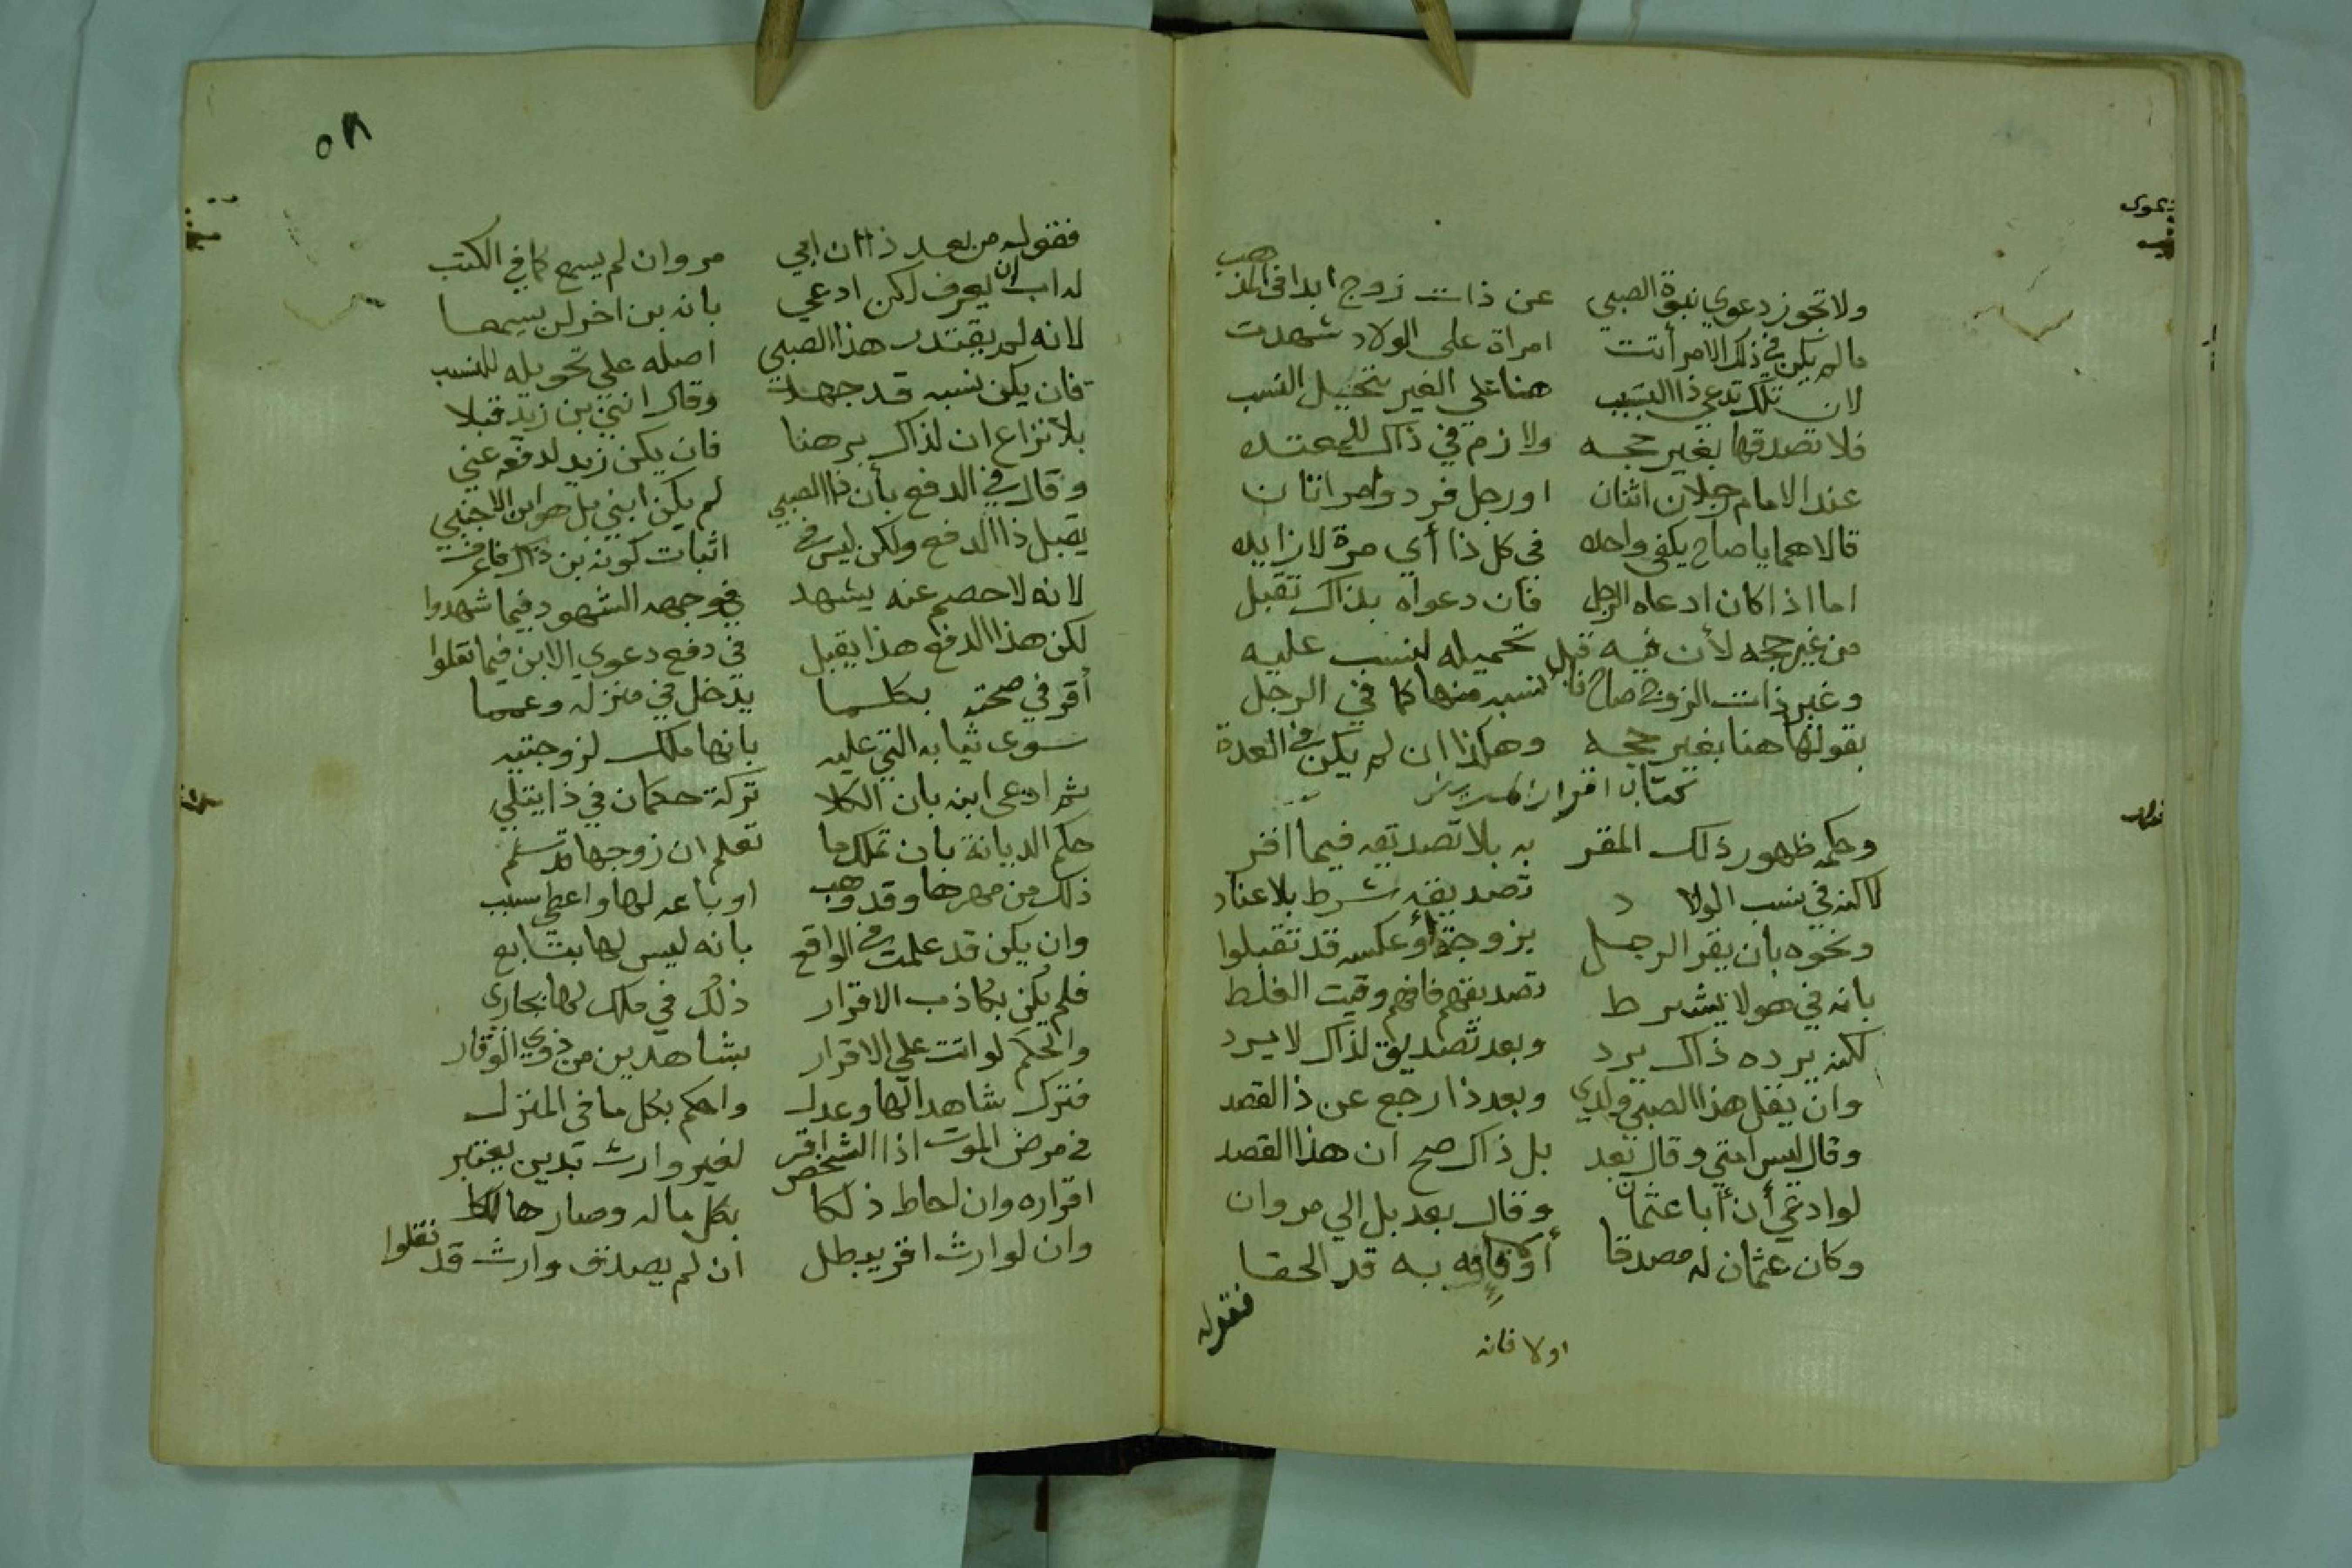 ولا تجوز دعوي نبوة الصبي عن ذات زوج ابدا في المذهب
ما لم يكن في ذلك الامر أتت امراة على الولاد شهدت
لان تلك تدعي ذا السبب هنا علي الغير بتحميل النسب
فلا تصدقها بغير حجه ولازم في ذاك للمعتده
عند الامام رجلان اثنان او رجل فرد وامراتان
قالا هما يا صاح يكفي واحده في كل ذا أي مرة لا زايده
اما اذا كان ادعاه الرجل فان دعواه بذاك تقبل
من غير حجه لأن فيه قبل تحميله لنسب عليه
وغير ذات الزوج صاح فانه لنسبه منها كما في الرجل
بقولها هنا بغير حجه وهكذا ان لم يكن في العدة
كتاب اقرار المريض
وحكمه ظهور ذلك المقر به بلا تصديقه فيما اقر
لاكنه في نسب الولاد تصديقه شرط بلا عناد
ونحوه بان يقر الرجل بزوجة أو عكسه قد تقبلوا
بانه في هولا يشترط تصديقهم فافهم وقيت الغلط
لكنه يرده ذاك يرد وبعد تصديق لذاك لا يرد
وان يقل هذا الصبي ولدي وبعد ذا رجع عن ذا القصد
وقال ليس ابني وقال بعد بل ذاك صح ان هذا القصد
لو ادعي أن أبا عثمان وقال بعد بل الي مروان
وكان عثمان له مصدقا أو قافه به قد الحقا
فقوله
اولا فانه
٥٨
فقوله من بعد ذا ان ابي مروان لم يسمع كما في الكتب
له اب ان ليعرف لكن ادعي بانه بن اخر لن يسمعا
لانه لم يقتدر هذا الصبي اصله علي تحويله للنسب
فان يكن نسبه قد جهلا وقال انني بن زيد قبلا
بلا نزاع ان لذاك برهنا فان يكن زيد لدفعه عني
وقال في الدفع بأن ذا الصبي لم يكن ابني بل هو ابن الاجنبي
يقبل ذا الدفع ولكن ليس في اثبات كونه بن ذاك فاعرف
لانه لا خصم عنه يشهد في وجهه الشهود فيما شهدوا
لكن هذا الدفع هذا يقبل في دفع دعوي الابن فيما نقلوا
أقر في صحته بكلما يدخل في منزله وعمما
سوى ثيابه التي عليه بانها ملك لزوجتيه
ثم ادعى ابنه بان الكلا تركة حكمان في ذا يتلي
حكم الديانة بان تملك ما تعلم ان زوجها قد سلم
ذلك من مهرها وقد وهب او باعه لها واعطي سبب
وان يكن قد علمت في الواقع بانه ليس لها بتابع
فلم يكن بكاذب الاقرار ذلك في ملك لها بجاري
والحكم لو اتت علي الاقرار بشاهدين من ذوي الوقار
فترك شاهدا لها وعدل واحكم بكل ما في المنزل
في مرض الموت اذا الشخص اقر لغير وارث بدين يعتبر
اقراره وان احاط ذلكا بكل ماله وصار هالكا
وان لوارث اقر يبطل ان لم يصدق وارث قد نقلوا